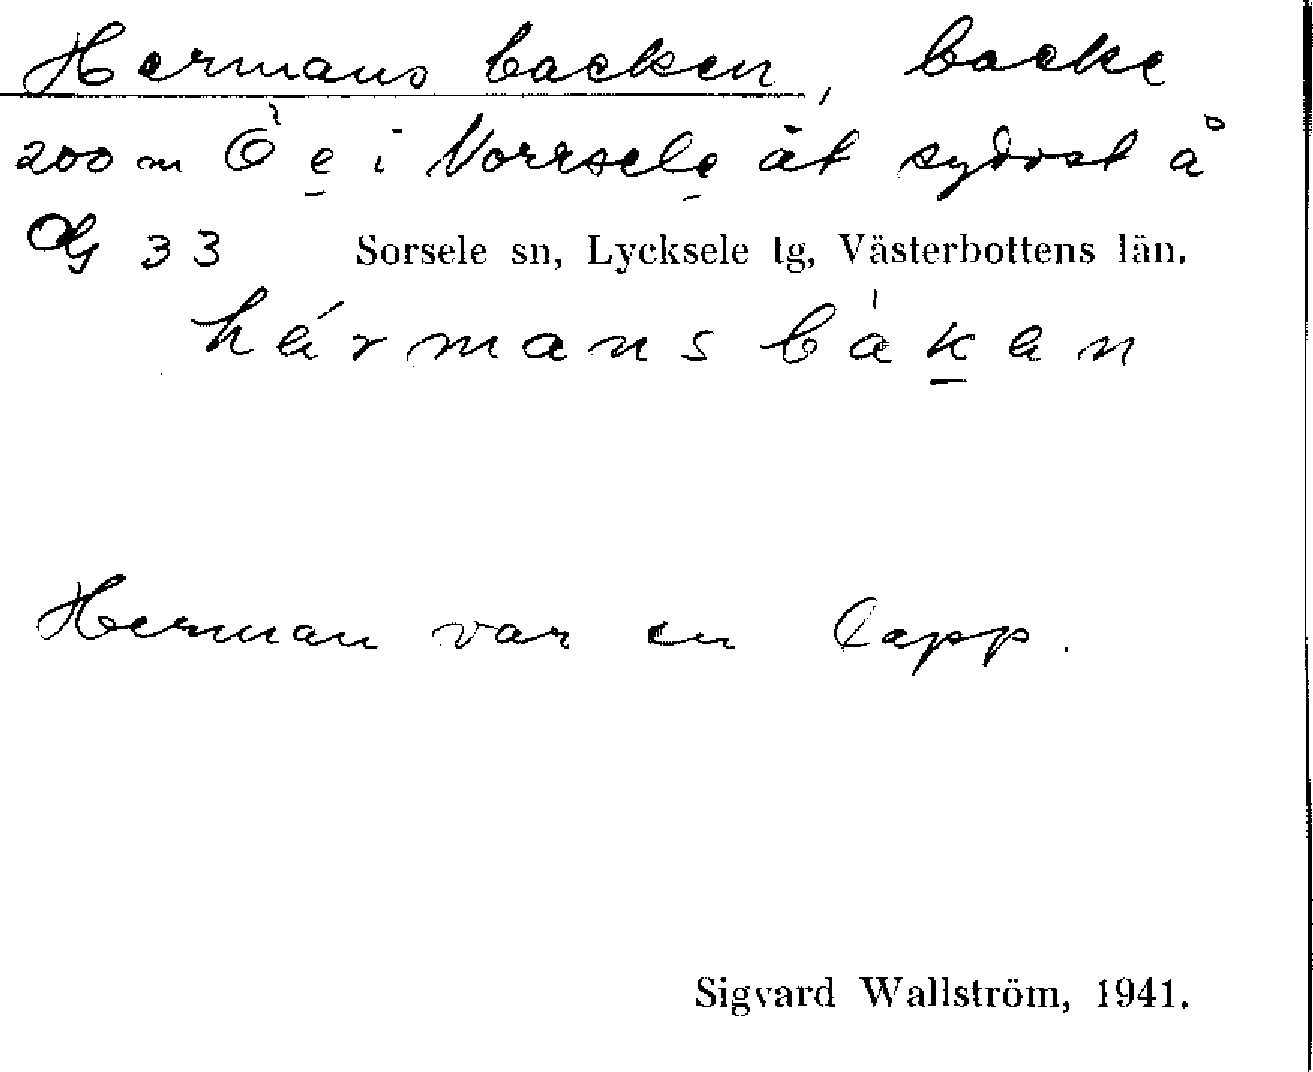 Hermans backen, backe
200 m Ö e i Norrsele åt sydost å
33 Sorsele sn, Lycksele tg, Västerbottens län.
hérmansbàken
Herman var en lapp.
Sigvard Wallström, 1941.